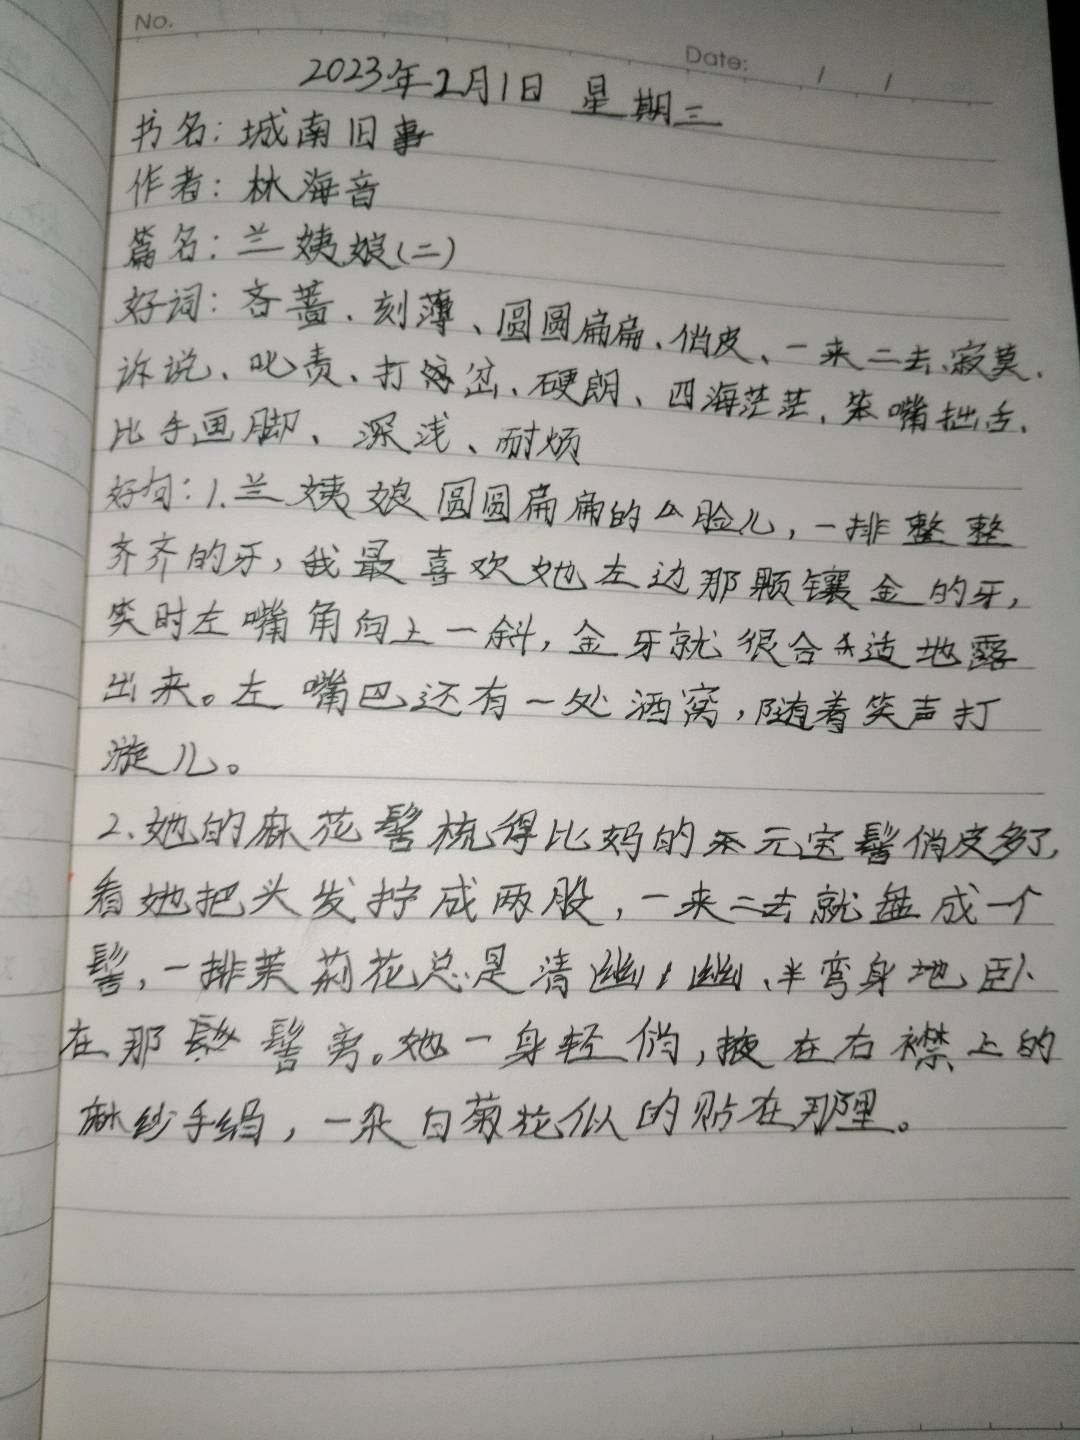 No.
Date: / /
2023年2月1日 星期三
书名：城南旧事
作者：林海音
篇名：兰姨娘（二）
好词：吝蔷、刻薄、圆圆扁扁、俏皮、一来二去、寂莫、
诉说、叱责、打岔、硬朗、四海茫茫、笨嘴拙舌、
比手画脚、深浅、耐烦
好句：1.兰姨娘圆圆扁扁的脸儿，一排整整
齐齐的牙，我最喜欢她左边那颗镶金的牙，
笑时左嘴角向上一斜，金牙就很合适地露
出来。左嘴巴还有一处酒窝，随着笑声打
漩儿。
2.她的麻花髻梳得比妈的元宝髻俏皮多了，
看她把头发拧成两股，一来二去就盘成一个
髻，一排茉莉花总是清幽幽、半弯身地卧
在那髻旁。她一身轻俏，掖在右襟上的
麻纱手绢，一朵白菊花似的贴在那里。